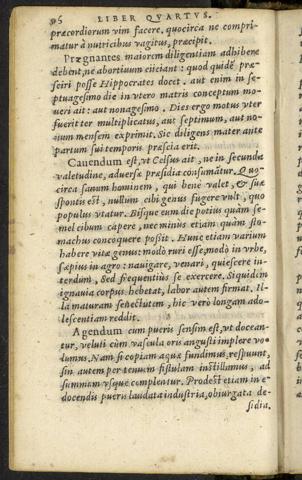 96 LIBER QVARTVS.
præcordiorum vim facere, quocirca ne compri-
matur à nutricibus vagitus, præcipit.
Prægnantes maiorem diligentiam adhibere
debent, ne abortiuum eiiciant: quod quidē præ-
seiri posse Hippocrates docet. aut enim in se-
ptuagesimo die in vtero matris conceptum mo-
ueri ait: aut nonagesimo. Dies ergo motus vter
fuerit ter multiplicatus, aut septimum, aut no-
num mensem exprimit. Sic diligens mater ante
partum sui temporis præscia erit.
Cauendum est, vt Celsus ait, ne in secunda
valetudine, aduersæ præsidia consumãtur. Quo-
circa sanum hominem, qui bene valet, & suæ
spontis est, nullum cibi genus fugere vult, quo
populus vtatur. Bisque eum die potius quàm se-
mel cibum capere, nec minus etiam quàm sto-
machus concoquere possit. Hunc etiam varium
habere vitæ genus: modò ruri esse, modò in vrbe,
sæpius in agro: nauigare, venari, quiescere in-
terdum, Sed frequentius se exercere. Siquidem
ignauia corpus hebetat, labor autem firmat. Il-
la maturam senectutem, hic verò longam ado-
lescentiam reddit.
Agendum cum pueris sensim est, vt docean-
tur, veluti cùm vascula oris angusti implere vo-
lumus. Nam si copiam aquæ fundimus, respuunt,
sin autem per tenuem fistulam instillamus, ad
summum vsque complentur. Prodest etiam in e-
docendis pueris laudata industria, obiurgata de-
sidia.